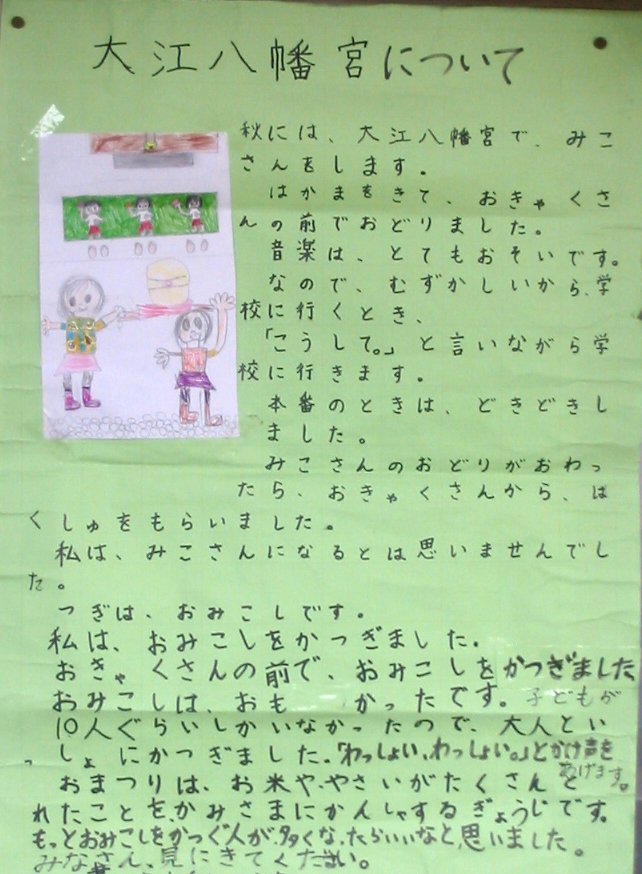 大江八幡宮について
秋には、大江八幡宮で、みこ
さんをします。
はかまをきて、おきゃくさ
んの前でおどりました。
音楽は、とてもおそいです。
なので、むずかしいから、学
校に行くとき、
「こうして。」と言いながら学
校に行きます。
本番のときは、どきどきし
ました。
みこさんのおどりがおわっ
たら、おきゃくさんから、は
くしゅをもらいました。
私は、みこさんになるとは思いませんでし
た。
つぎは、おみこしです。
私は、おみこしをかつぎました。
おきゃくさんの前で、おみこしをかつぎました
おみこしは、おも かったです。子どもが
10人ぐらいしかいなかったので、大人とい
っしょにかつぎました。「わっしょい、わっしょい。」とかけ声を
あげます。
おまつりは、お米や、やさいがたくさんと
れたことを、かみさまにかんしゃするぎょうじです。
もっとおみこしをかつぐ人が、多くなったらいいなと思いました。
みなさん、見にきてください。